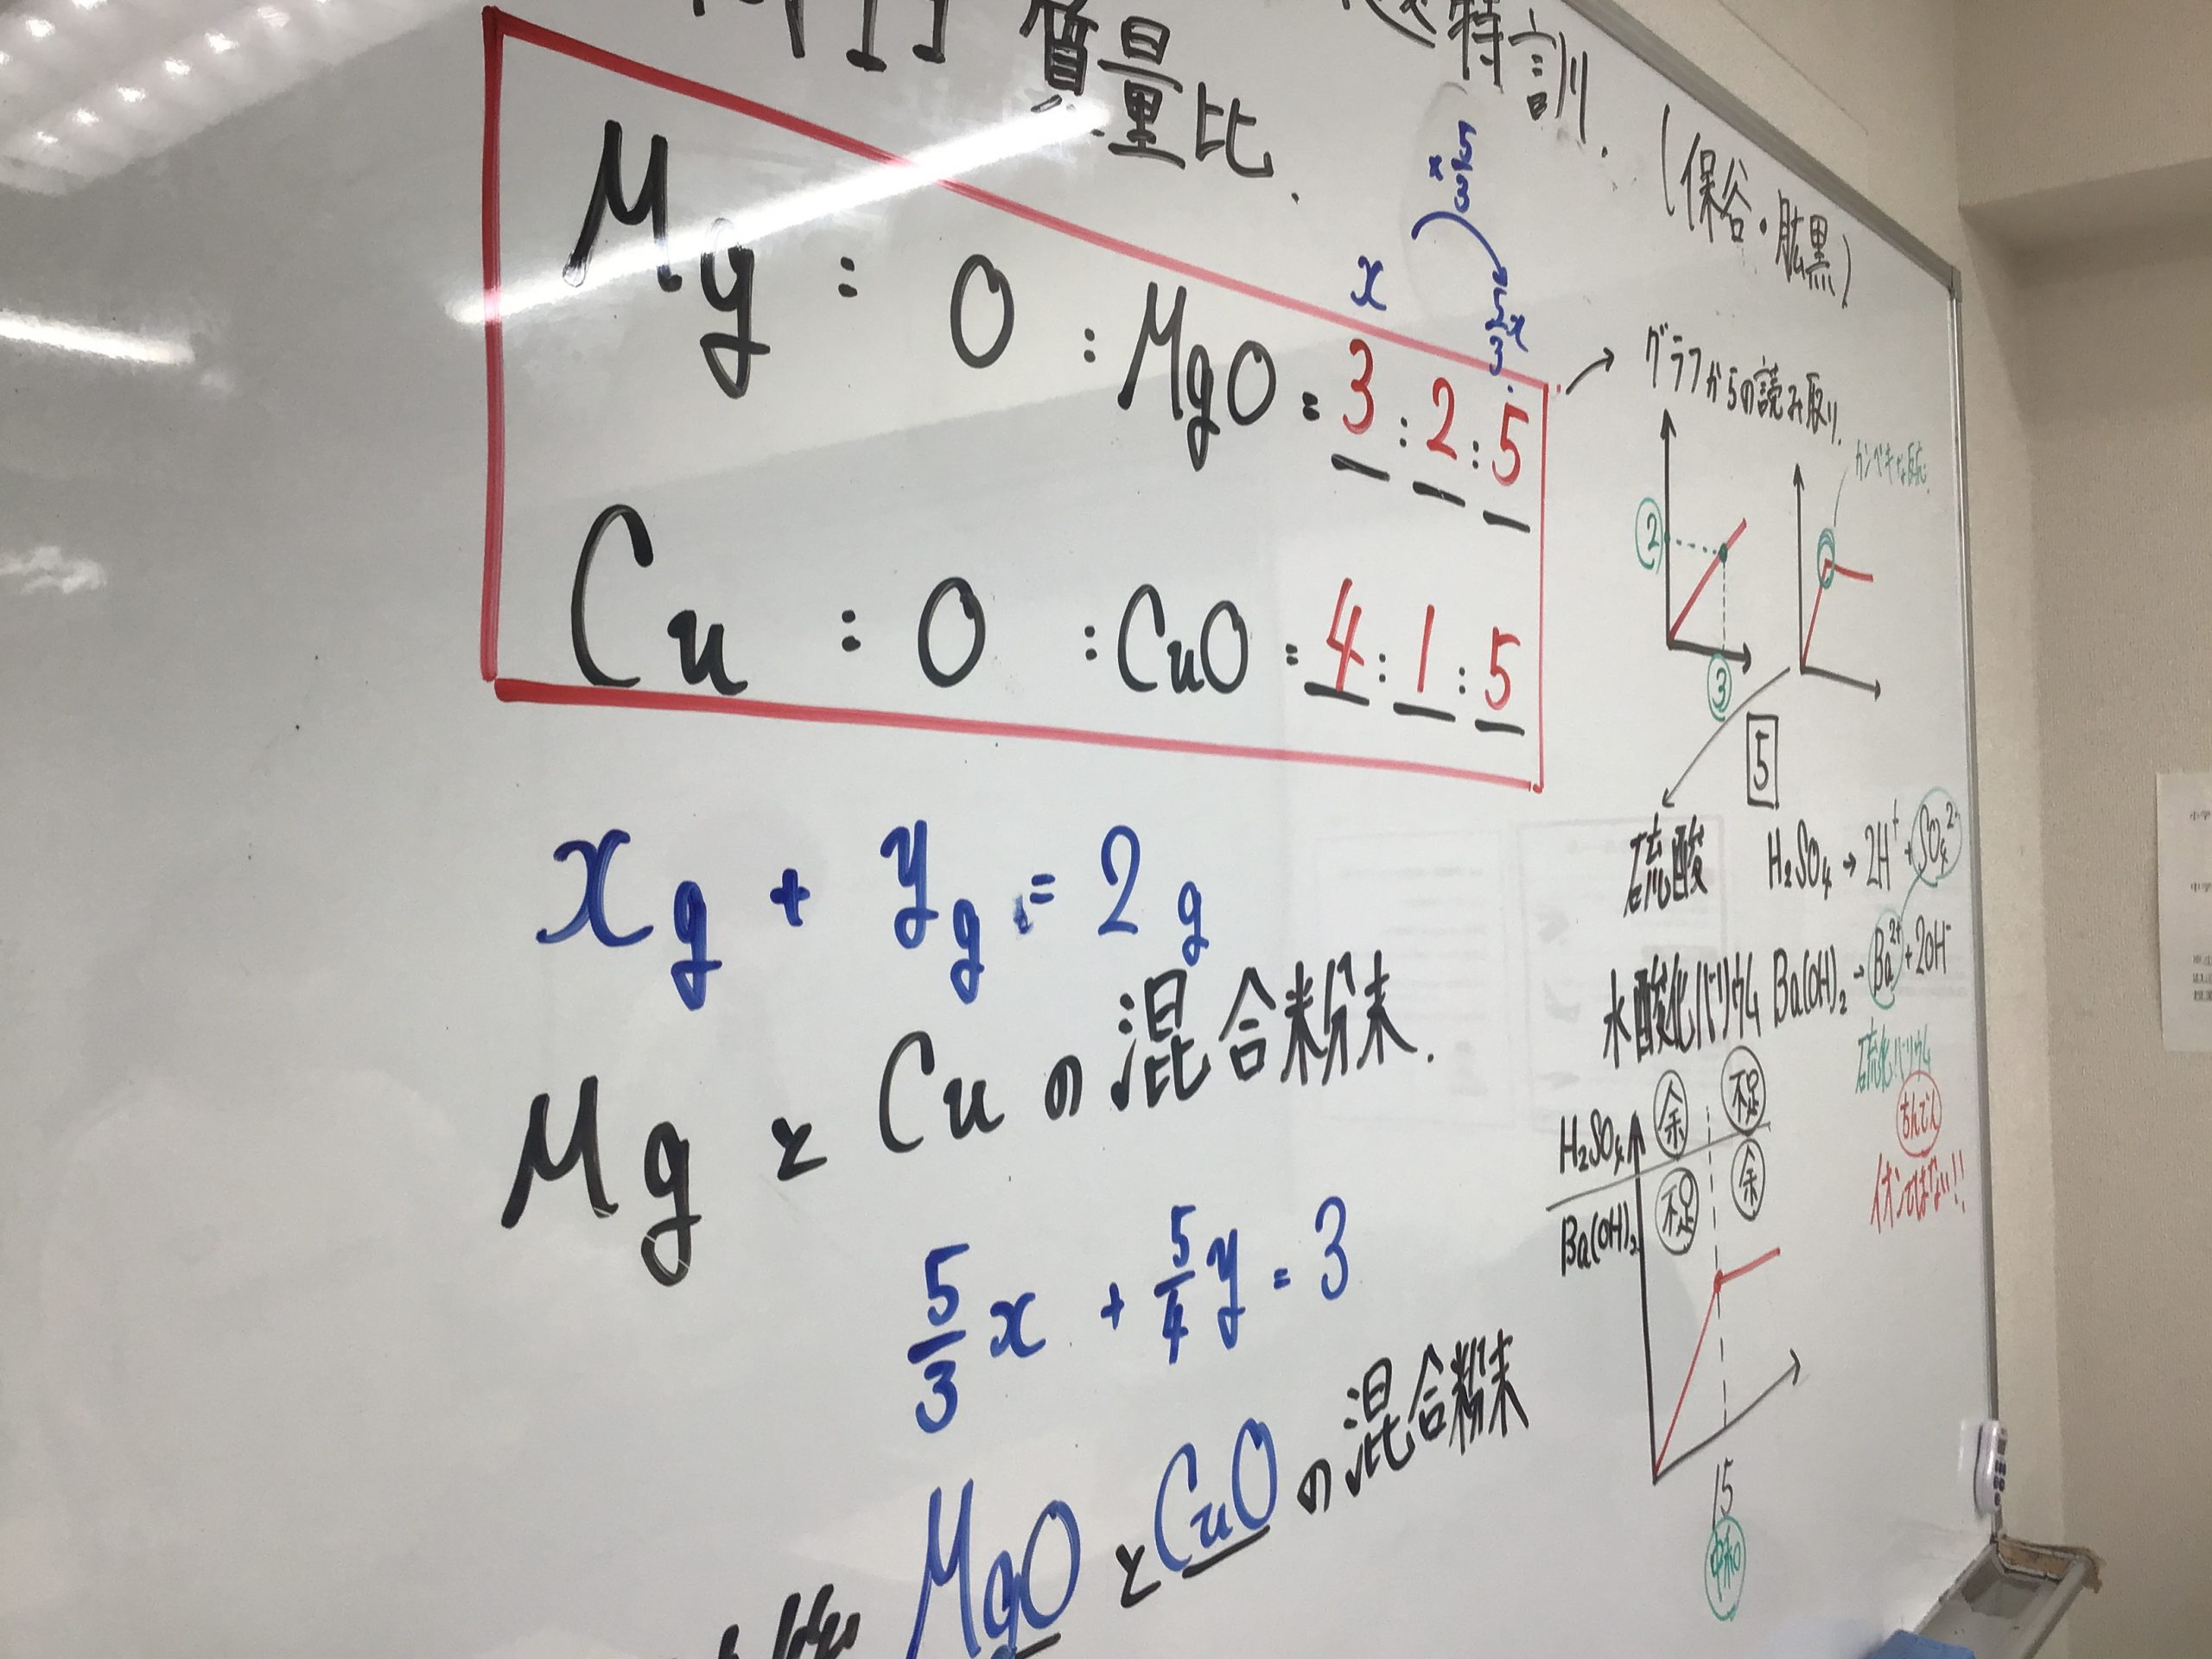 質量比.
特訓.
(保谷・肱黒)
Mg : O : MgO = 3 : 2 : 5
x
×5/3
5/3x
Cu : O : CuO = 4 : 1 : 5
xg + yg = 2g
MgとCuの混合粉末.
5/3x + 5/4y = 3
MgOとCuOの混合粉末
グラフからの読み取り.
カンペキな反応.
②
③
5
硫酸 H₂SO₄→2H⁺+SO₄²⁻
水酸化バリウム Ba(OH)₂→Ba²⁺+2OH⁻
硫化バリウム
ちんでん
イオンではない!!
H₂SO₄ 余 不足
Ba(OH)₂ 不足 余
15
中和